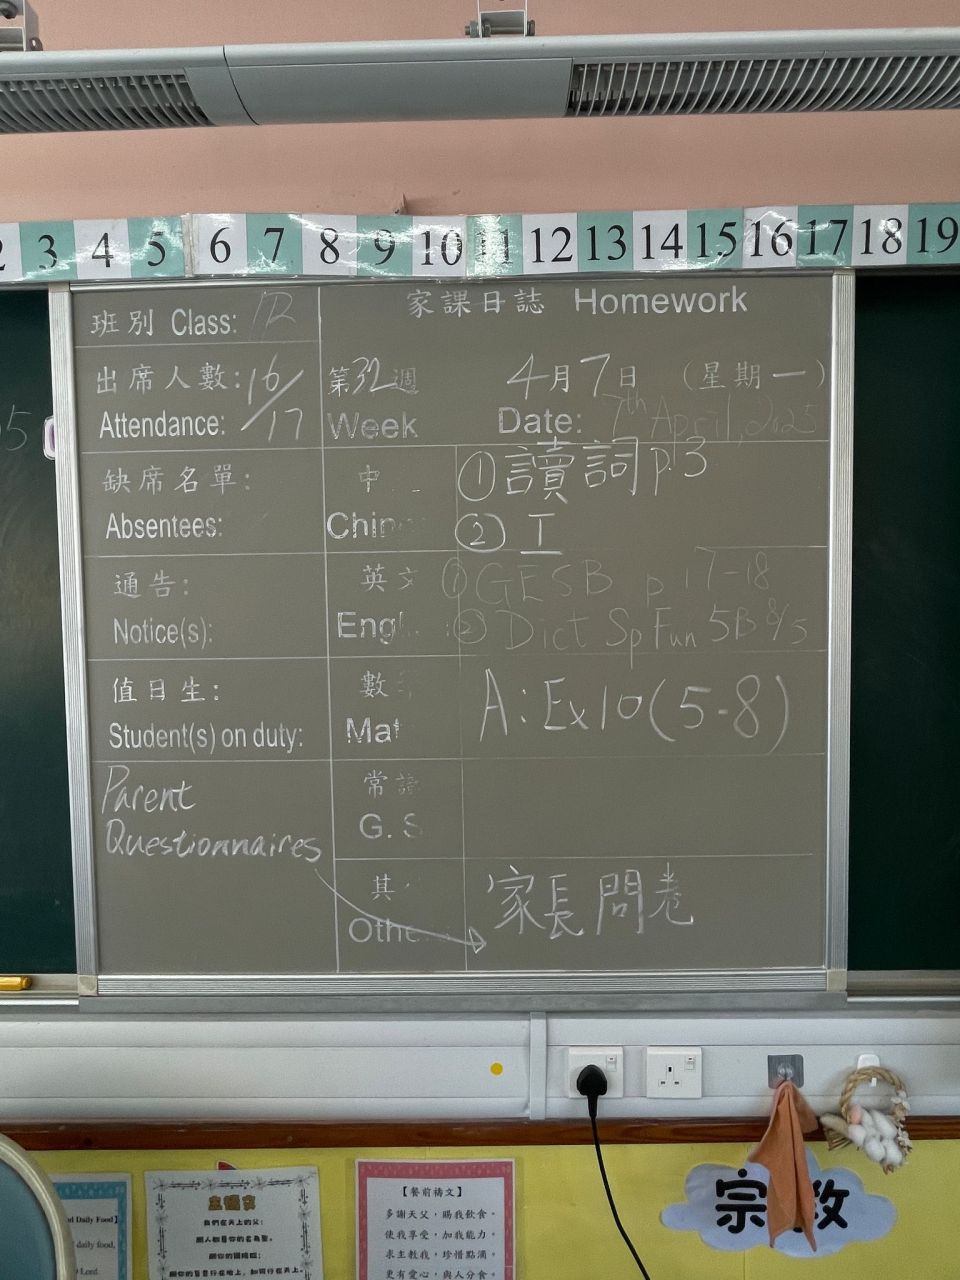 3 4 5 6 7 8 9 10 11 12 13 14 15 16 17 18 19
班別 Class:
家課日誌 Homework
出席人數: 16/17
Attendance:
第32週
Week
4月7日 (星期一)
Date: 7th April, 2025
缺席名單:
Absentees:
中
Chin
①讀詞 p.3
② 工
通告:
Notice(s):
英文
Engl
① GESB p 17-18
② Dict Sp Fun 5B 8/5
值日生:
Student(s) on duty:
數
Mat
A: Ex10 (5-8)
Parent
Questionnaires
常識
G. S
其
Othe
家長問卷
宗教
d Daily Food】
daily food,
Lord
主禱文
我們在天上的父:
願人都尊你的名為聖。
願你的國降臨;
願你的旨意行在地上,如同行在天上。
【餐前禱文】
多謝天父,賜我飲食。
使我享受,加我能力,
求主教我,珍惜點滴。
更有愛心,與人分食。